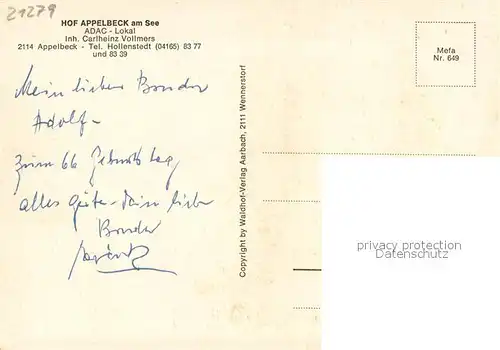 21279
HOF APPELBECK am See
ADAC - Lokal
Inh. Carlheinz Vollmers
2114 Appelbeck - Tel. Hollenstedt (04165) 83 77
und 83 39
Mein lieber Bruder
Adolf -
Zum 66 Geburtstag,
alles Gute - Dein lieber
Bruder
Copyright by Waldhof-Verlag Aarbach, 2111 Wennerstorf
Mefa
Nr. 649
privacy protection
Datenschutz